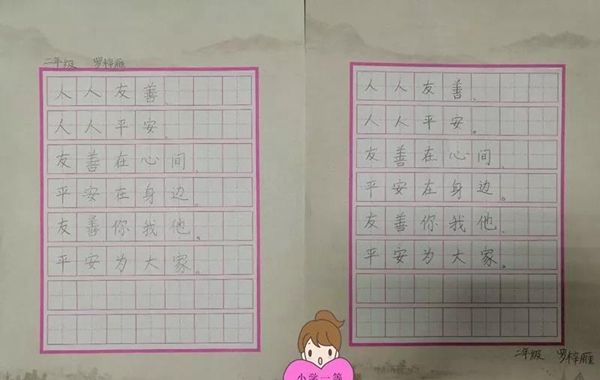 二年级 罗梓雁
人人友善,
人人平安。
友善在心间,
平安在身边。
友善你我他,
平安为大家。
人人友善,
人人平安。
友善在心间,
平安在身边。
友善你我他,
平安为大家。
二年级 罗梓雁
小学一等